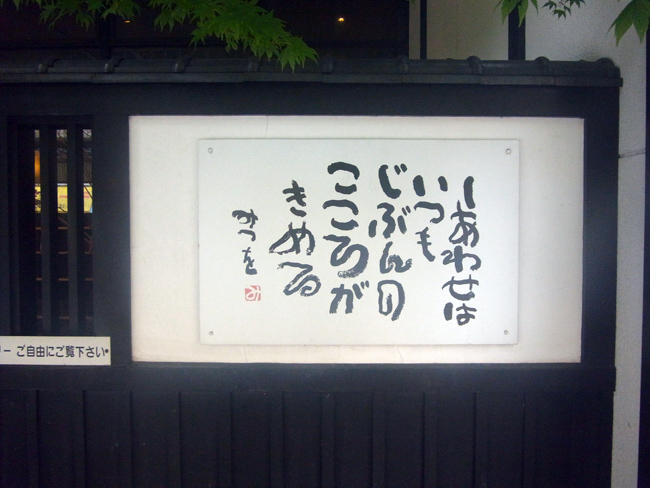 しあわせは
いつも
じぶんの
こころが
きめる
みつを
み
ー ご自由にご覧下さい